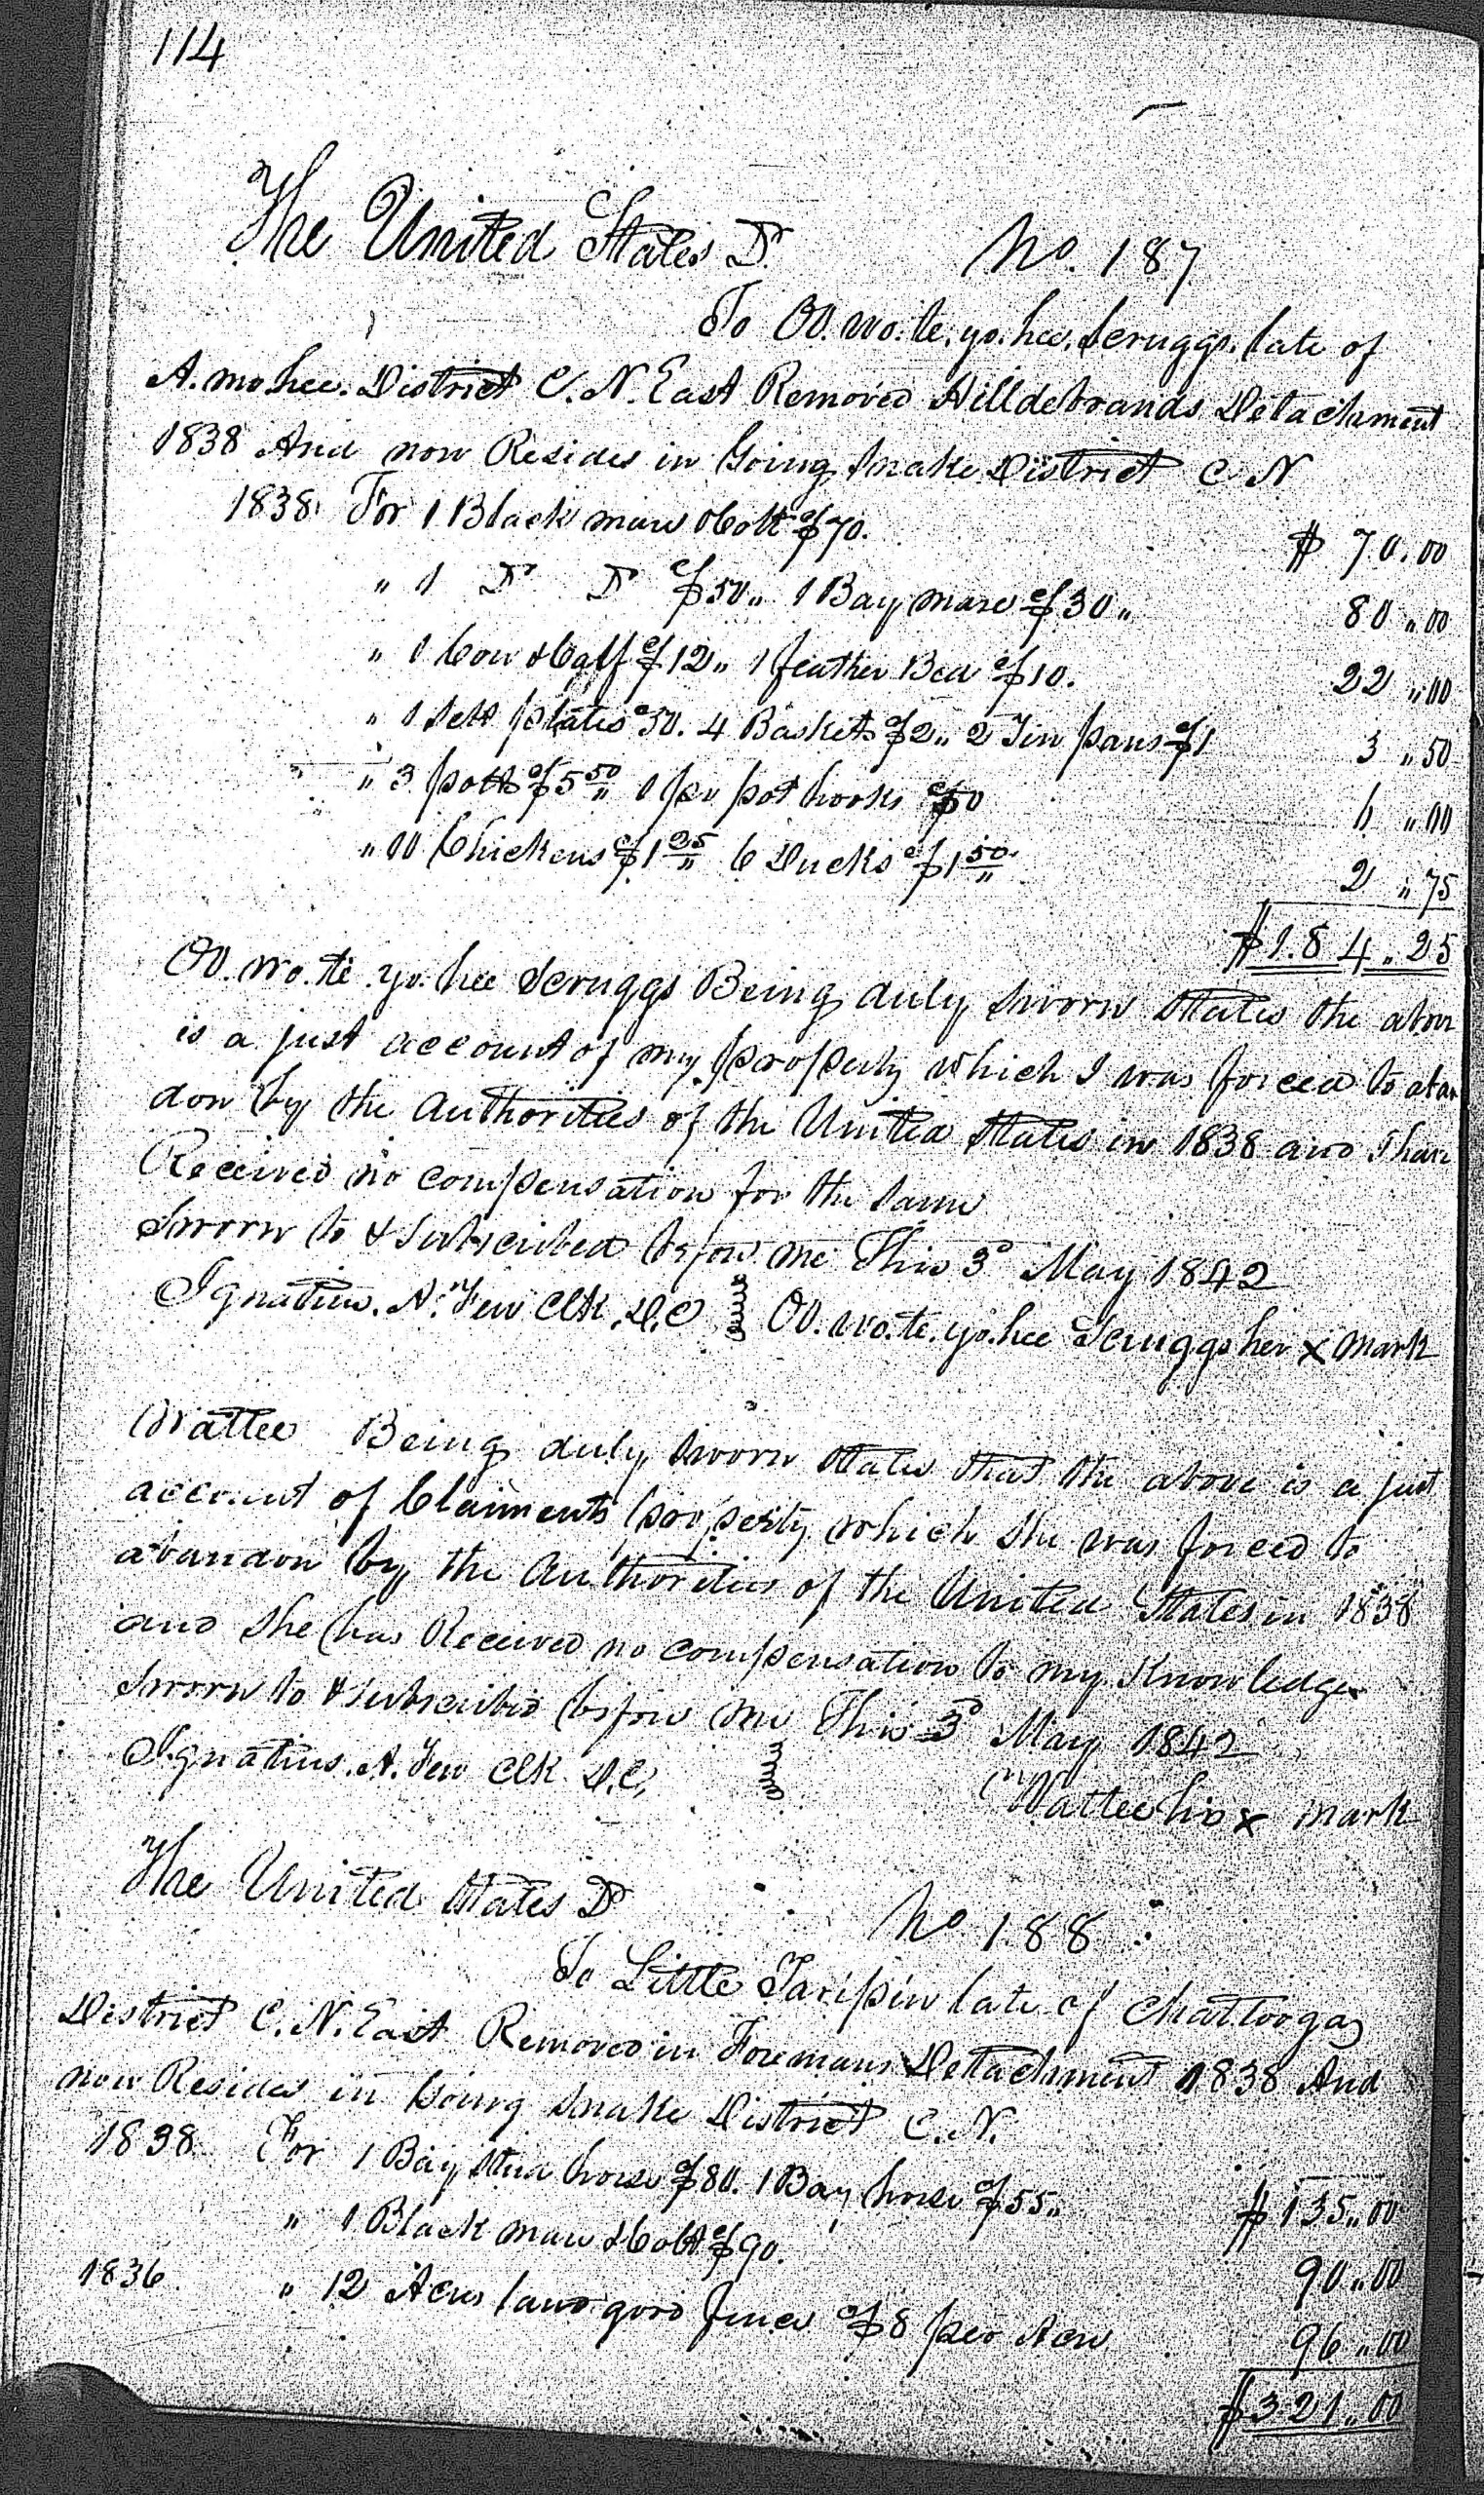 114
The United States Dr. No. 187
To Oo.wo.te.yo.hee. Scruggs. late of
A.mohee. District C. N. East Removed Hilldebrands Detachment
1838 And now Resides in Going Snake District C. N
1838 For 1 Black mare & Colt $70. $ 70.00
" 1 Do Do $50 " 1 Bay mare $30 " 80 " 00
" 1 Cow & Calf $12 " 1 feather Bed $10. 22 " 00
" 1 Sett plates 50. 4 Baskets $2 " 2 Tin pans $1 3 " 50
" 3 potts $5 50 1 pr pot hooks 50 6 " 00
" 10 Chickens $1 25 6 Ducks $1 50 2 " 75
$184 " 25
Oo.wo.te.yo.hee Scruggs Being duly Sworn States the abov
is a just account of my property which I was forced to aban
don by the Authorities of the United States in 1838 and I have
Received no compensation for the same
Sworn to & Subscribed before me This 3d May 1842
Ignatius. A. Few Clk. D.C Oo.wo.te.yo.hee Scruggs her x mark
Wattee Being duly Sworn States that the above is a just
account of Claiments property which She was forced to
abandon by the Authorities of the United States in 1838
and She has Received no compensation to my Knowledge
Sworn to & subscribed before me This 3d May 1842
Ignatius. A. Few Clk D.C, Wattee his x mark
The United States Dr No 188
To Little Taripin late of Chattooga
District C. N. East Removed in Foremans Detachment 1838 And
now Resides in Going Snake District C. N.
1838 For 1 Bay Stud horse $80. 1 Bay horse $55 " $ 135 " 00
" 1 Black mare & Colt $90. 90 " 00
1836 " 12 Acres land good fence $8 per Acre 96 " 00
$321 " 00